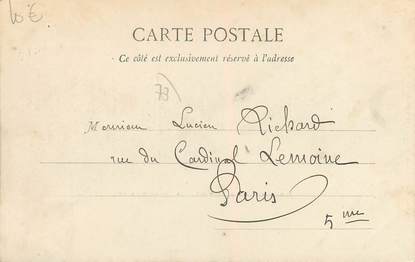 10 €
CARTE POSTALE
Ce côté est exclusivement réservé à l'adresse
79
Monsieur Lucien Richard
rue du Cardinal Lemoine
Paris
5me